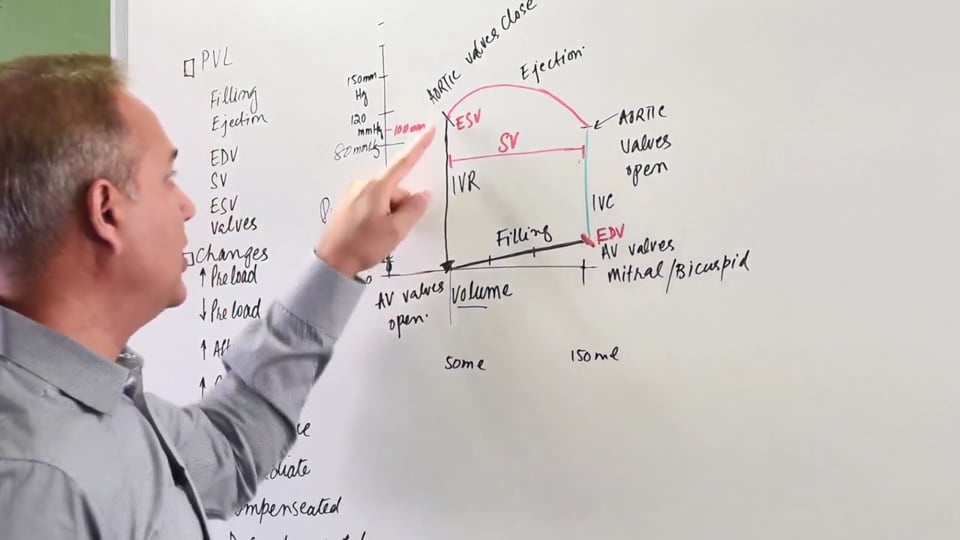 PVL
Filling
Ejection
EDV
SV
ESV
valves
Changes
↑ Preload
↓ Preload
↑
↑
150mm
Hg
120
mmHg
100mm
80mmHg
AORTIC valves close
Ejection
ESV
SV
IVR
AORTIC
valves
open
IVC
Filling
EDV
AV valves
mitral/Bicuspid
AV valves
open.
Volume
50ml
150ml